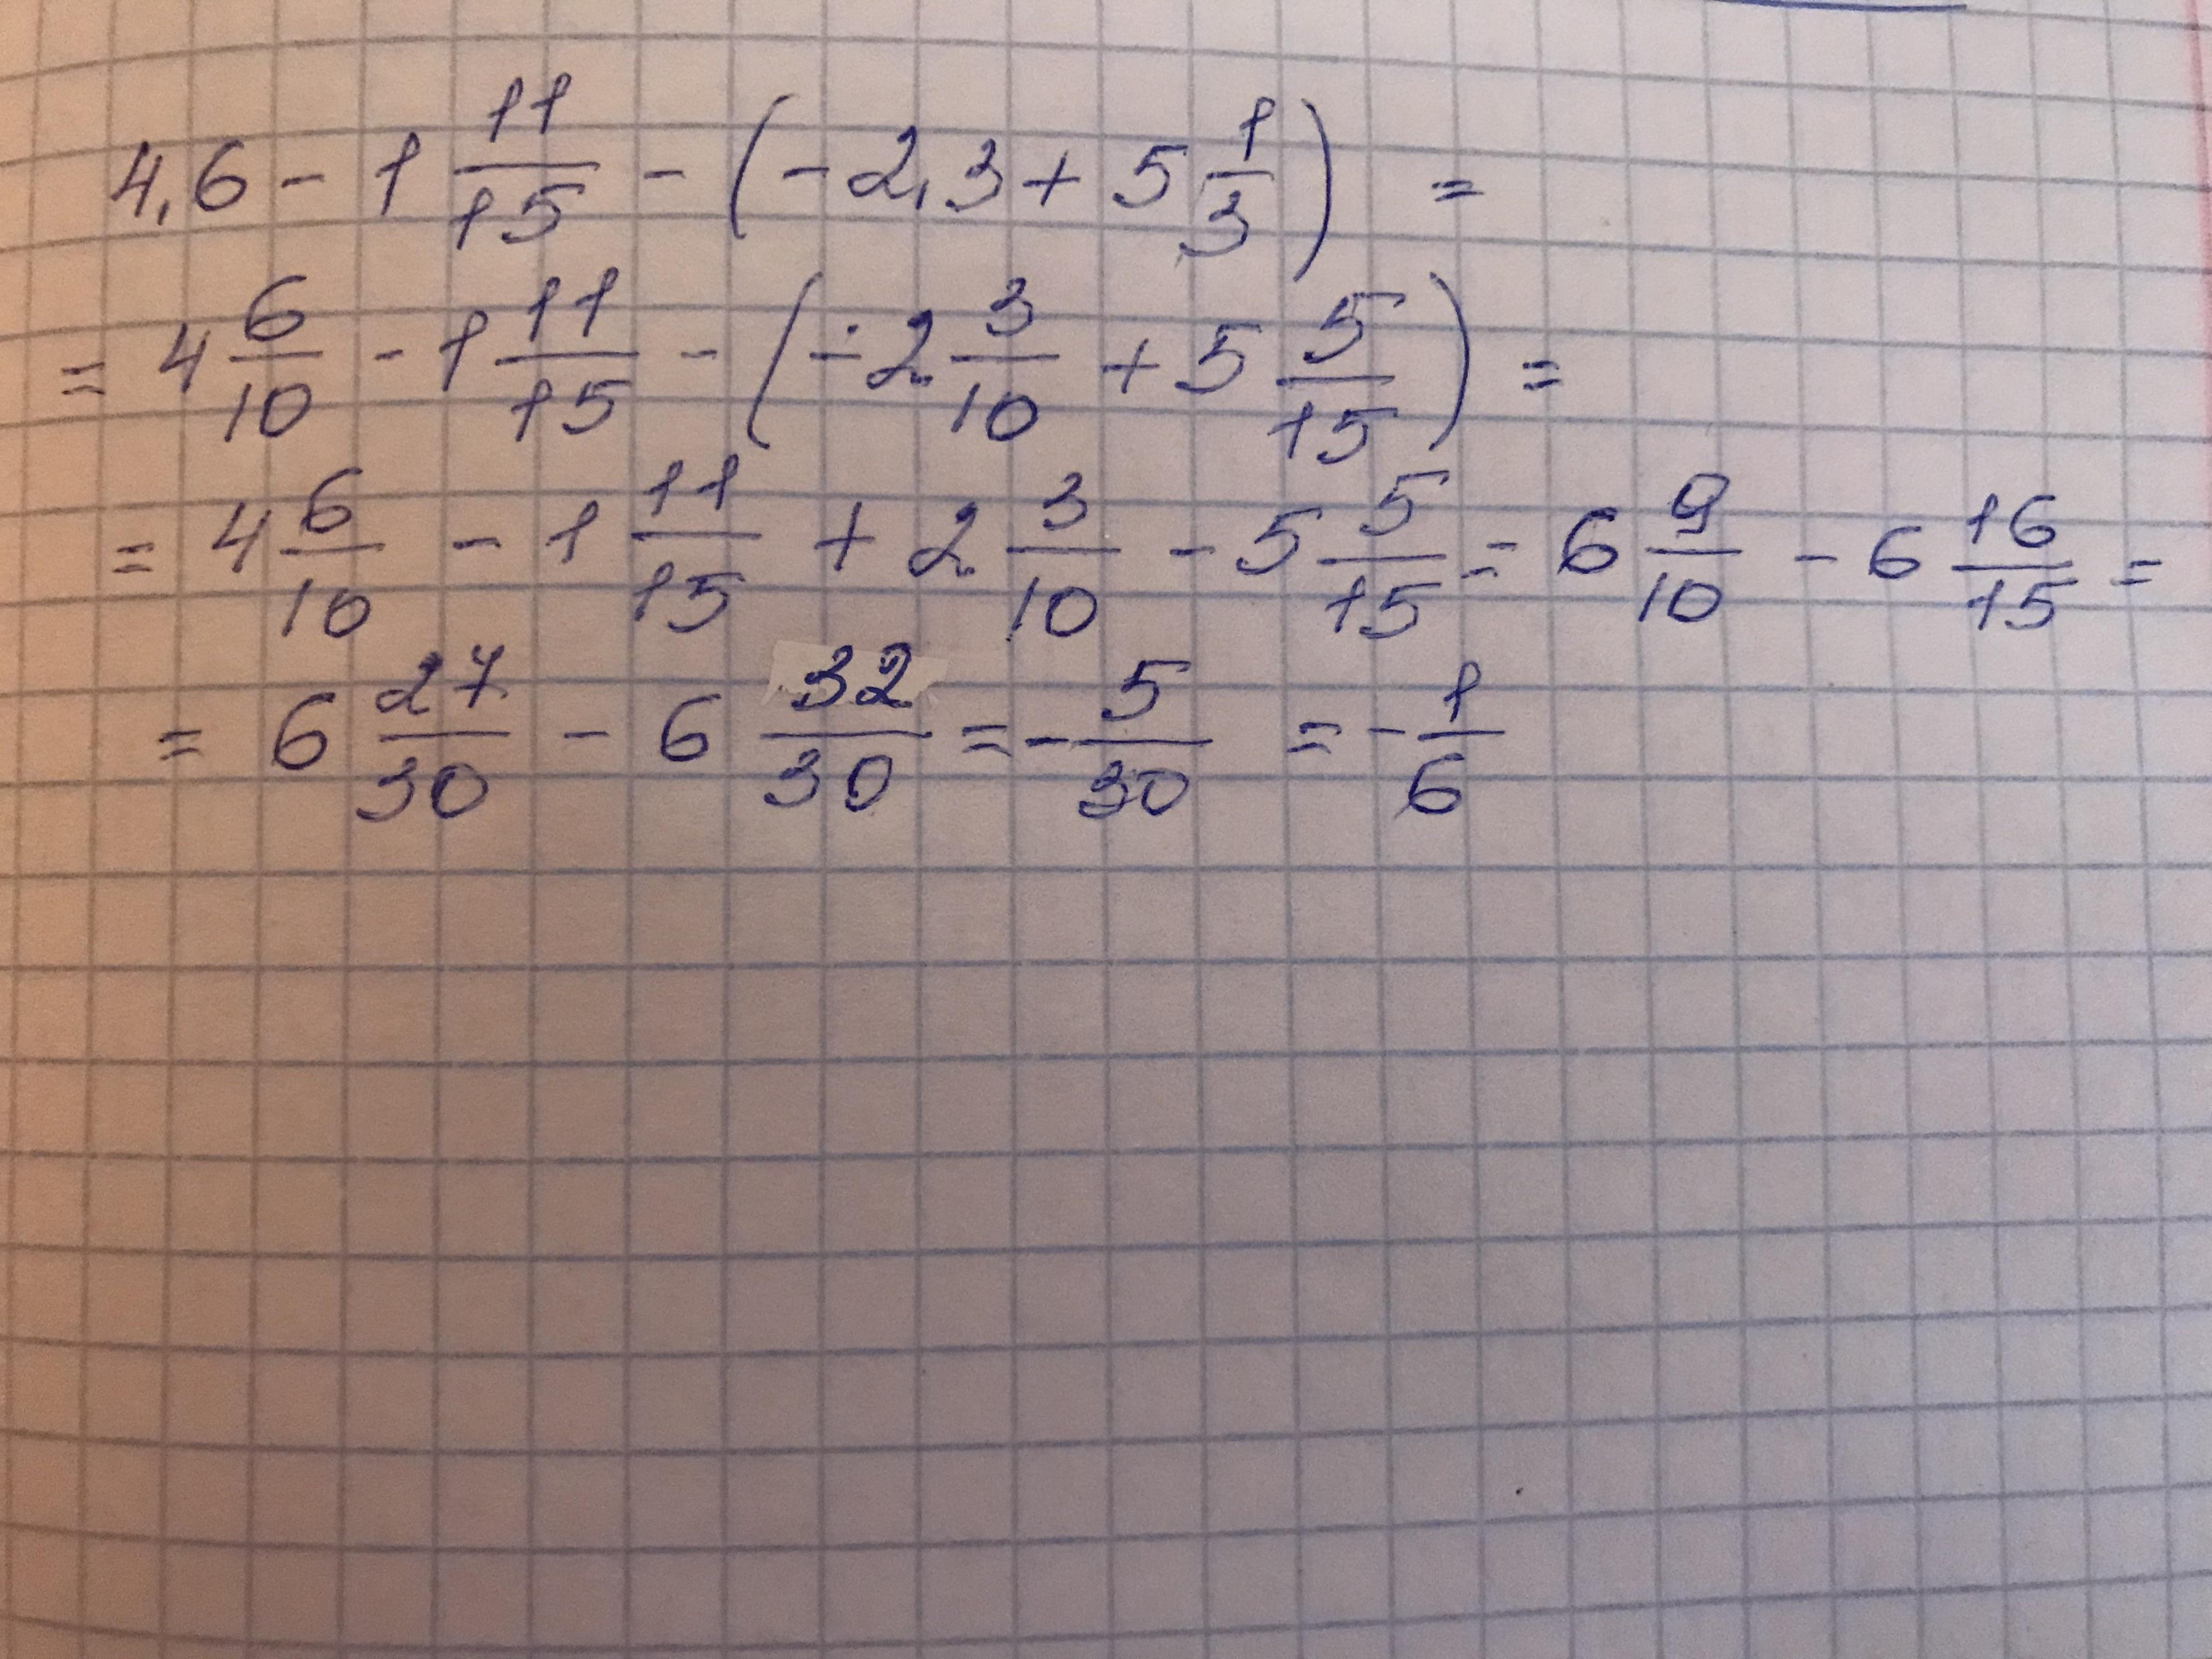 4,6 - 1 11/15 - (-2,3 + 5 1/3) =
= 4 6/10 - 1 11/15 - (-2 3/10 + 5 5/15) =
= 4 6/10 - 1 11/15 + 2 3/10 - 5 5/15 = 6 9/10 - 6 16/15 =
= 6 27/30 - 6 32/30 = - 5/30 = - 1/6